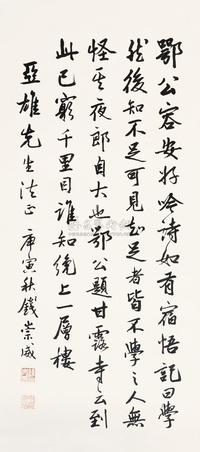 鄂公容安好吟詩如有宿悟記曰學
然後知不足可見知足者皆不學之人無
怪其夜郎自大也鄂公題甘露寺云到
此已窮千里目誰知纔上一層樓
亞雄先生法正 庚寅秋錢崇威